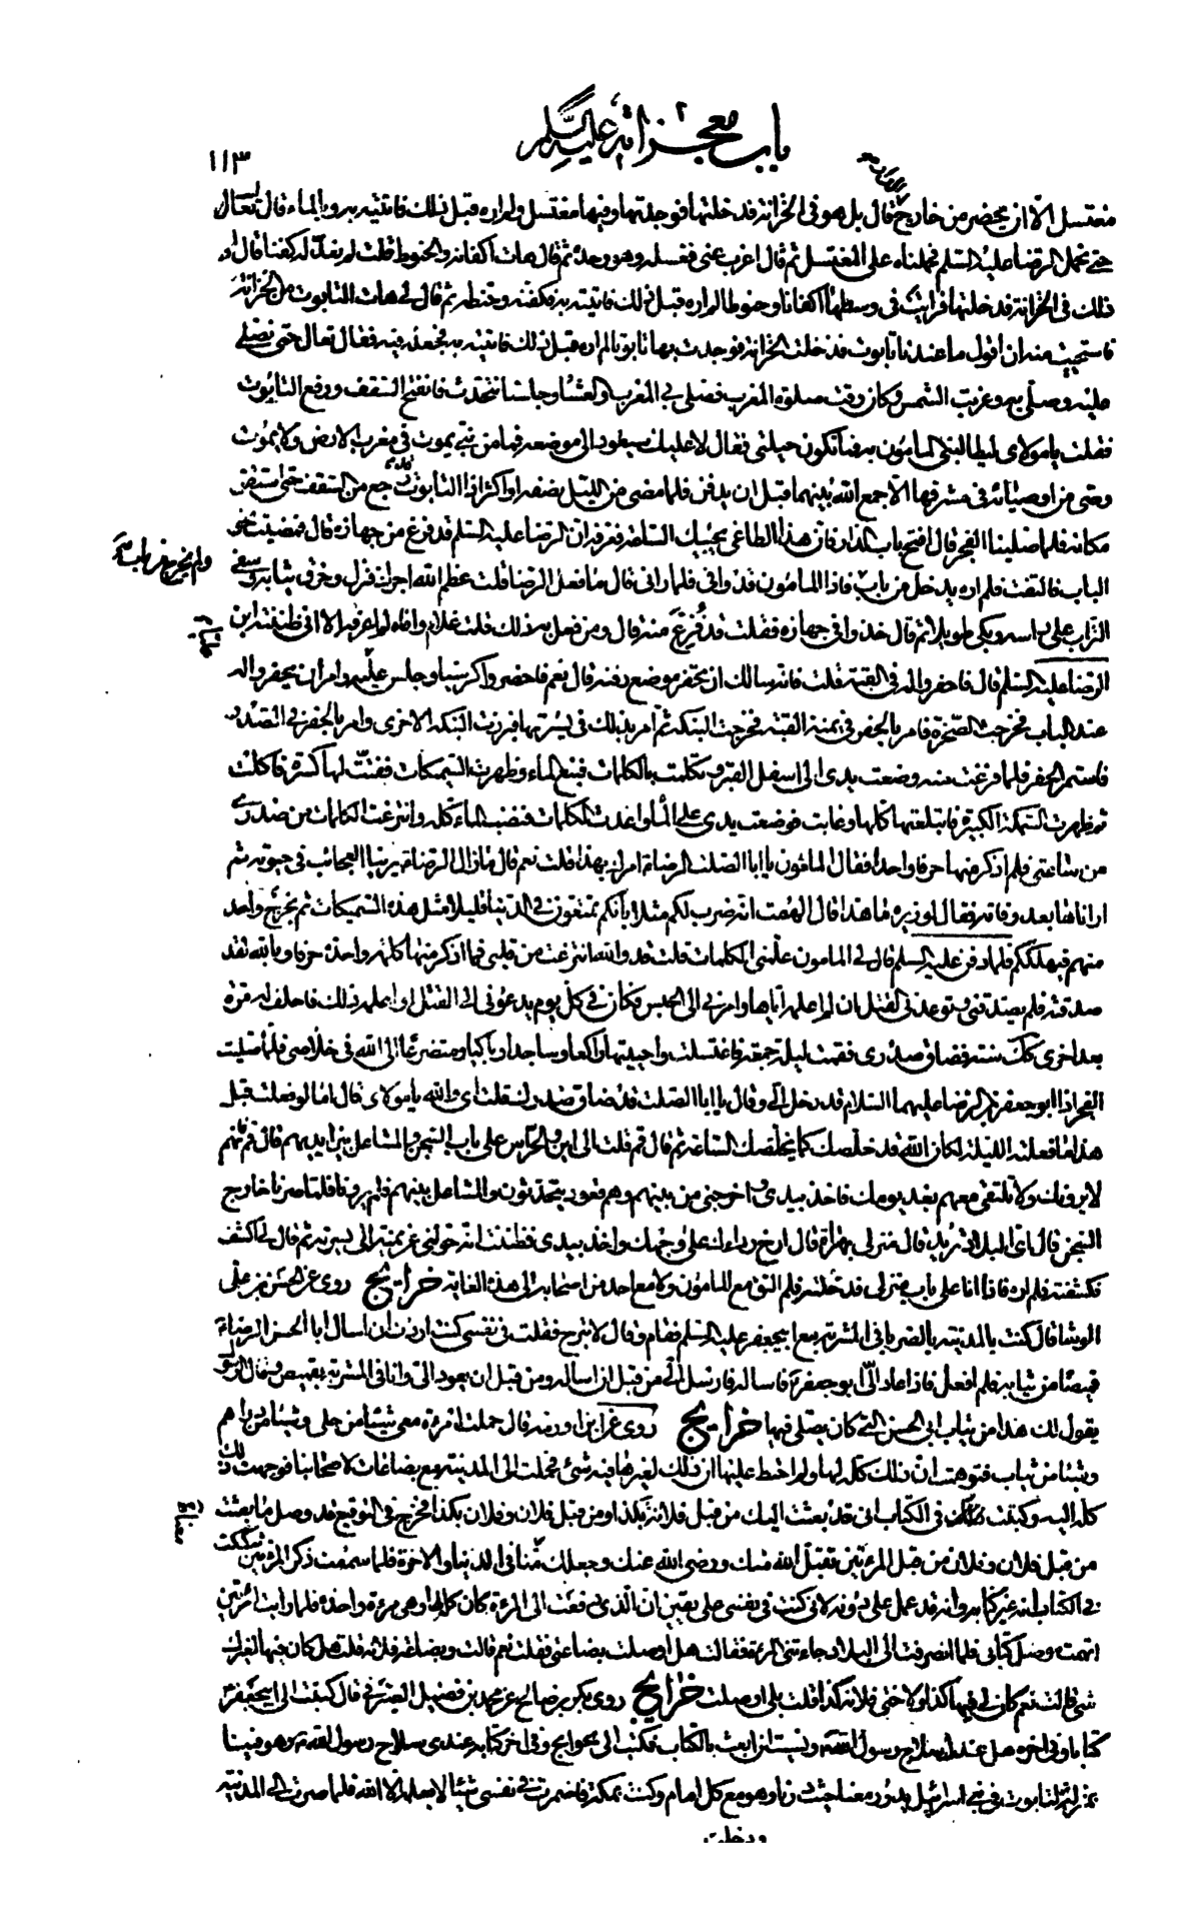 باب معجزاته عليه السلام
١١٣
مغتسل الا ان يحضر من خارج قال بل هو في الخزانة فدخلتها فوجدتها وفيها مغتسل ولم اره قبل ذلك فاتيته به وبالماء قال تعال
حتى نحمل الرضا عليه السلم فحملناه على المغتسل ثم قال اعزب عني فغسله وهو وحده ثم قال هات اكفانه والحنوط قلت لم نعد له كفنا قال
ذلك في الخزانة فدخلتها فرايت في وسطها اكفانا وحنوطا لم اره قبل ذلك فاتيته به فكفنه وحنطه ثم قال لي هات التابوت من الخزانة
فاستحييت منه ان اقول ما عندنا تابوت فدخلت الخزانة فوجدت بها تابوتا لم اره قبل ذلك فاتيته به فجعله فيه فقال تعال حتى نصلي
عليه وصلى به وغربت الشمس وكان وقت صلوة المغرب فصلى بي المغرب والعشا وجلسنا نتحدث فانفتح السقف ورفع التابوت
فقلت يا مولاي ليطالبني المامون به فما تكون حيلتي فقال لا عليك سيعود الى موضعه فما من نبي يموت في مغرب الارض ولا يموت
وصي من اوصيائه في مشرقها الا جمع الله بينهما قبل ان يدفن فلما مضى من الليل نصفه او اكثر اذا التابوت رجع من السقف حتى استقر
مكانه فلما صلينا الفجر قال افتح باب الدار فان هذا الطاغي يجيئك الساعة فعرفه ان الرضا عليه السلم قد فرغ من جهازه قال فمضيت نحو
الباب فالتفت فلم اره يدخل من باب فاذا المامون قد وافى فلما راني قال ما فعل الرضا قلت عظم الله اجرك فنزل وخرق ثيابه وسفى
التراب على راسه وبكى طويلا ثم قال خذوا في جهازه فقلت قد فرغ منه قال ومن فعل به ذلك قلت غلام وافاه لم اعرفه الا اني ظننته ابن
الرضا عليه السلم قال فاحفروا له في القبة قلت فانه سالك ان تحضر موضع دفنه قال نعم فاحضروا كرسيا وجلس عليه وامر ان يحفر له
عند الباب فخرجت الصخرة فامر بالحفر في يمنة القبة فخرجت النبكة ثم امر بذلك في يسرتها فبرزت النبكة الاخرى وامر بالحفر في الصدر
فاستمر الحفر فلما فرغت منه وضعت يدي الى اسفل القبر وتكلمت بالكلمات فنبع الماء وظهرت السميكات ففتت لها كسرة فاكلت
ثم ظهرت السمكة الكبيرة فابتلعتها كلها وغابت فوضعت يدي على الماء واعدت الكلمات فنضب الماء كله وانتزعت الكلمات من صدري
من ساعتي فلم اذكر منها حرفا واحدا فقال المامون يا ابا الصلت الرضا امرك بهذا قلت نعم قال ما زال الرضا يرينا العجائب في حيوته ثم
اراناها بعد وفاته فقال لوزيره ما هذا قال الهمت انه ضرب لكم مثلا بانكم تمتعون في الدنيا قليلا مثل هذه السميكات ثم يخرج واحد
منهم فيهلككم فلما دفن عليه السلم قال لي المامون علمني الكلمات قلت قد والله انتزعت من قلبي فما اذكر منها كلمة واحدة حرفا وبالله لقد
صدقته فلم يصدقني وتوعدني القتل ان لم اعلمه اياها وامر بي الى الحبس فكان في كل يوم يدعوني الى القتل او اعلمه ذلك فاحلف له مرة
بعد اخرى كذلك سنة فضاق صدري فقمت ليلة جمعة فاغتسلت واحييتها راكعا وساجدا وباكيا ومتضرعا الى الله في خلاصي فلما صليت
الفجر اذا ابو جعفر بن الرضا عليهما السلام قد دخل الي وقال يا ابا الصلت قد ضاق صدرك قلت اي والله يا مولاي قال اما لو فعلت قبل
هذا ما فعلته الليلة لكان الله قد خلصك كما يخلصك الساعة ثم قال قم قلت الى اين والحراس على باب السجن والمشاعل بين ايديهم قال قم فانهم
لا يرونك ولا تلتقي معهم بعد يومك فاخذ بيدي واخرجني من بينهم وهم قعود يتحدثون والمشاعل بينهم فلم يرونا فلما صرنا خارج
السجن قال اي البلاد تريد قال منزلي بهراة قال ارخ رداءك على وجهك واخذ بيدي فظننت انه حولني عن يمنته الى يسرته ثم قال لي اكشف
فكشفته فلم اره فاذا انا على باب منزلي فدخلته فلم التق مع المامون ولا مع احد من اصحابه الى هذه الغاية خرايج روي عن الحسن بن علي
الوشا قال كنت بالمدينة بالصريا في المشربة مع ابي جعفر عليه السلم فقام وقال لا تبرح فقلت في نفسي كنت اردت ان اسال ابا الحسن الرضا ع
قميصا من ثيابه فلم افعل فاذا عاد الي ابو جعفر ع فاساله فارسل الي من قبل ان اساله ومن قبل ان يعود الي وانا في المشربة بقميص وقال الرسول
يقول لك هذا من ثياب ابي الحسن التي كان يصلي فيها خرايج روي عن ابن اورمة قال حملت امرءة معي شيئا من حلي وشيئا من دراهم
وشيئا من ثياب فتوهمت ان ذلك كله لها ولم احتط عليها ان ذلك لغيرها فيه شئ فحملت الى المدينة مع بضاعات لاصحابنا فوجهت ذلك
كله اليه وكتبت في الكتاب اني قد بعثت اليك من قبل فلانة بكذا ومن قبل فلان وفلان بكذا فخرج في التوقيع قد وصل ما بعثت
من قبل فلان وفلان من قبل المرءتين تقبل الله منك ورضي الله عنك وجعلك معنا في الدنيا والاخرة فلما سمعت ذكر المرءتين شككت
في الكتاب انه غير كتابه وانه قد عمل علي دونه لاني كنت في نفسي على يقين ان الذي دفعت الي المرءة كان كله لها وهي مرءة واحدة فلما رايت امرءتين
اتهمت موصل كتابي فلما انصرفت الى البلاد جاءتني المرءة فقالت هل اوصلت بضاعتي فقلت نعم قالت وبضاعة فلانة قلت هل كان فيها لغيرك
شئ قالت نعم كان لي فيها كذا ولاختي فلانة كذا قلت بلى اوصلت خرايج روى بكر بن صالح عن محمد بن فضيل الصيرفي قال كتبت الى ابي جعفر ع
كتابا وفي اخره هل عندك سلاح رسول الله ص ونسيت ان ابعث بالكتاب فكتب الي بحوايج وفي اخر كتابه عندي سلاح رسول الله ص وهو فينا
بمنزلة التابوت في بني اسرائيل يدور معنا حيث درنا وهو مع كل امام وكنت بمكة فاضمرت في نفسي شيئا لا يعلمه الا الله فلما صرت الى المدينة
ودخلت